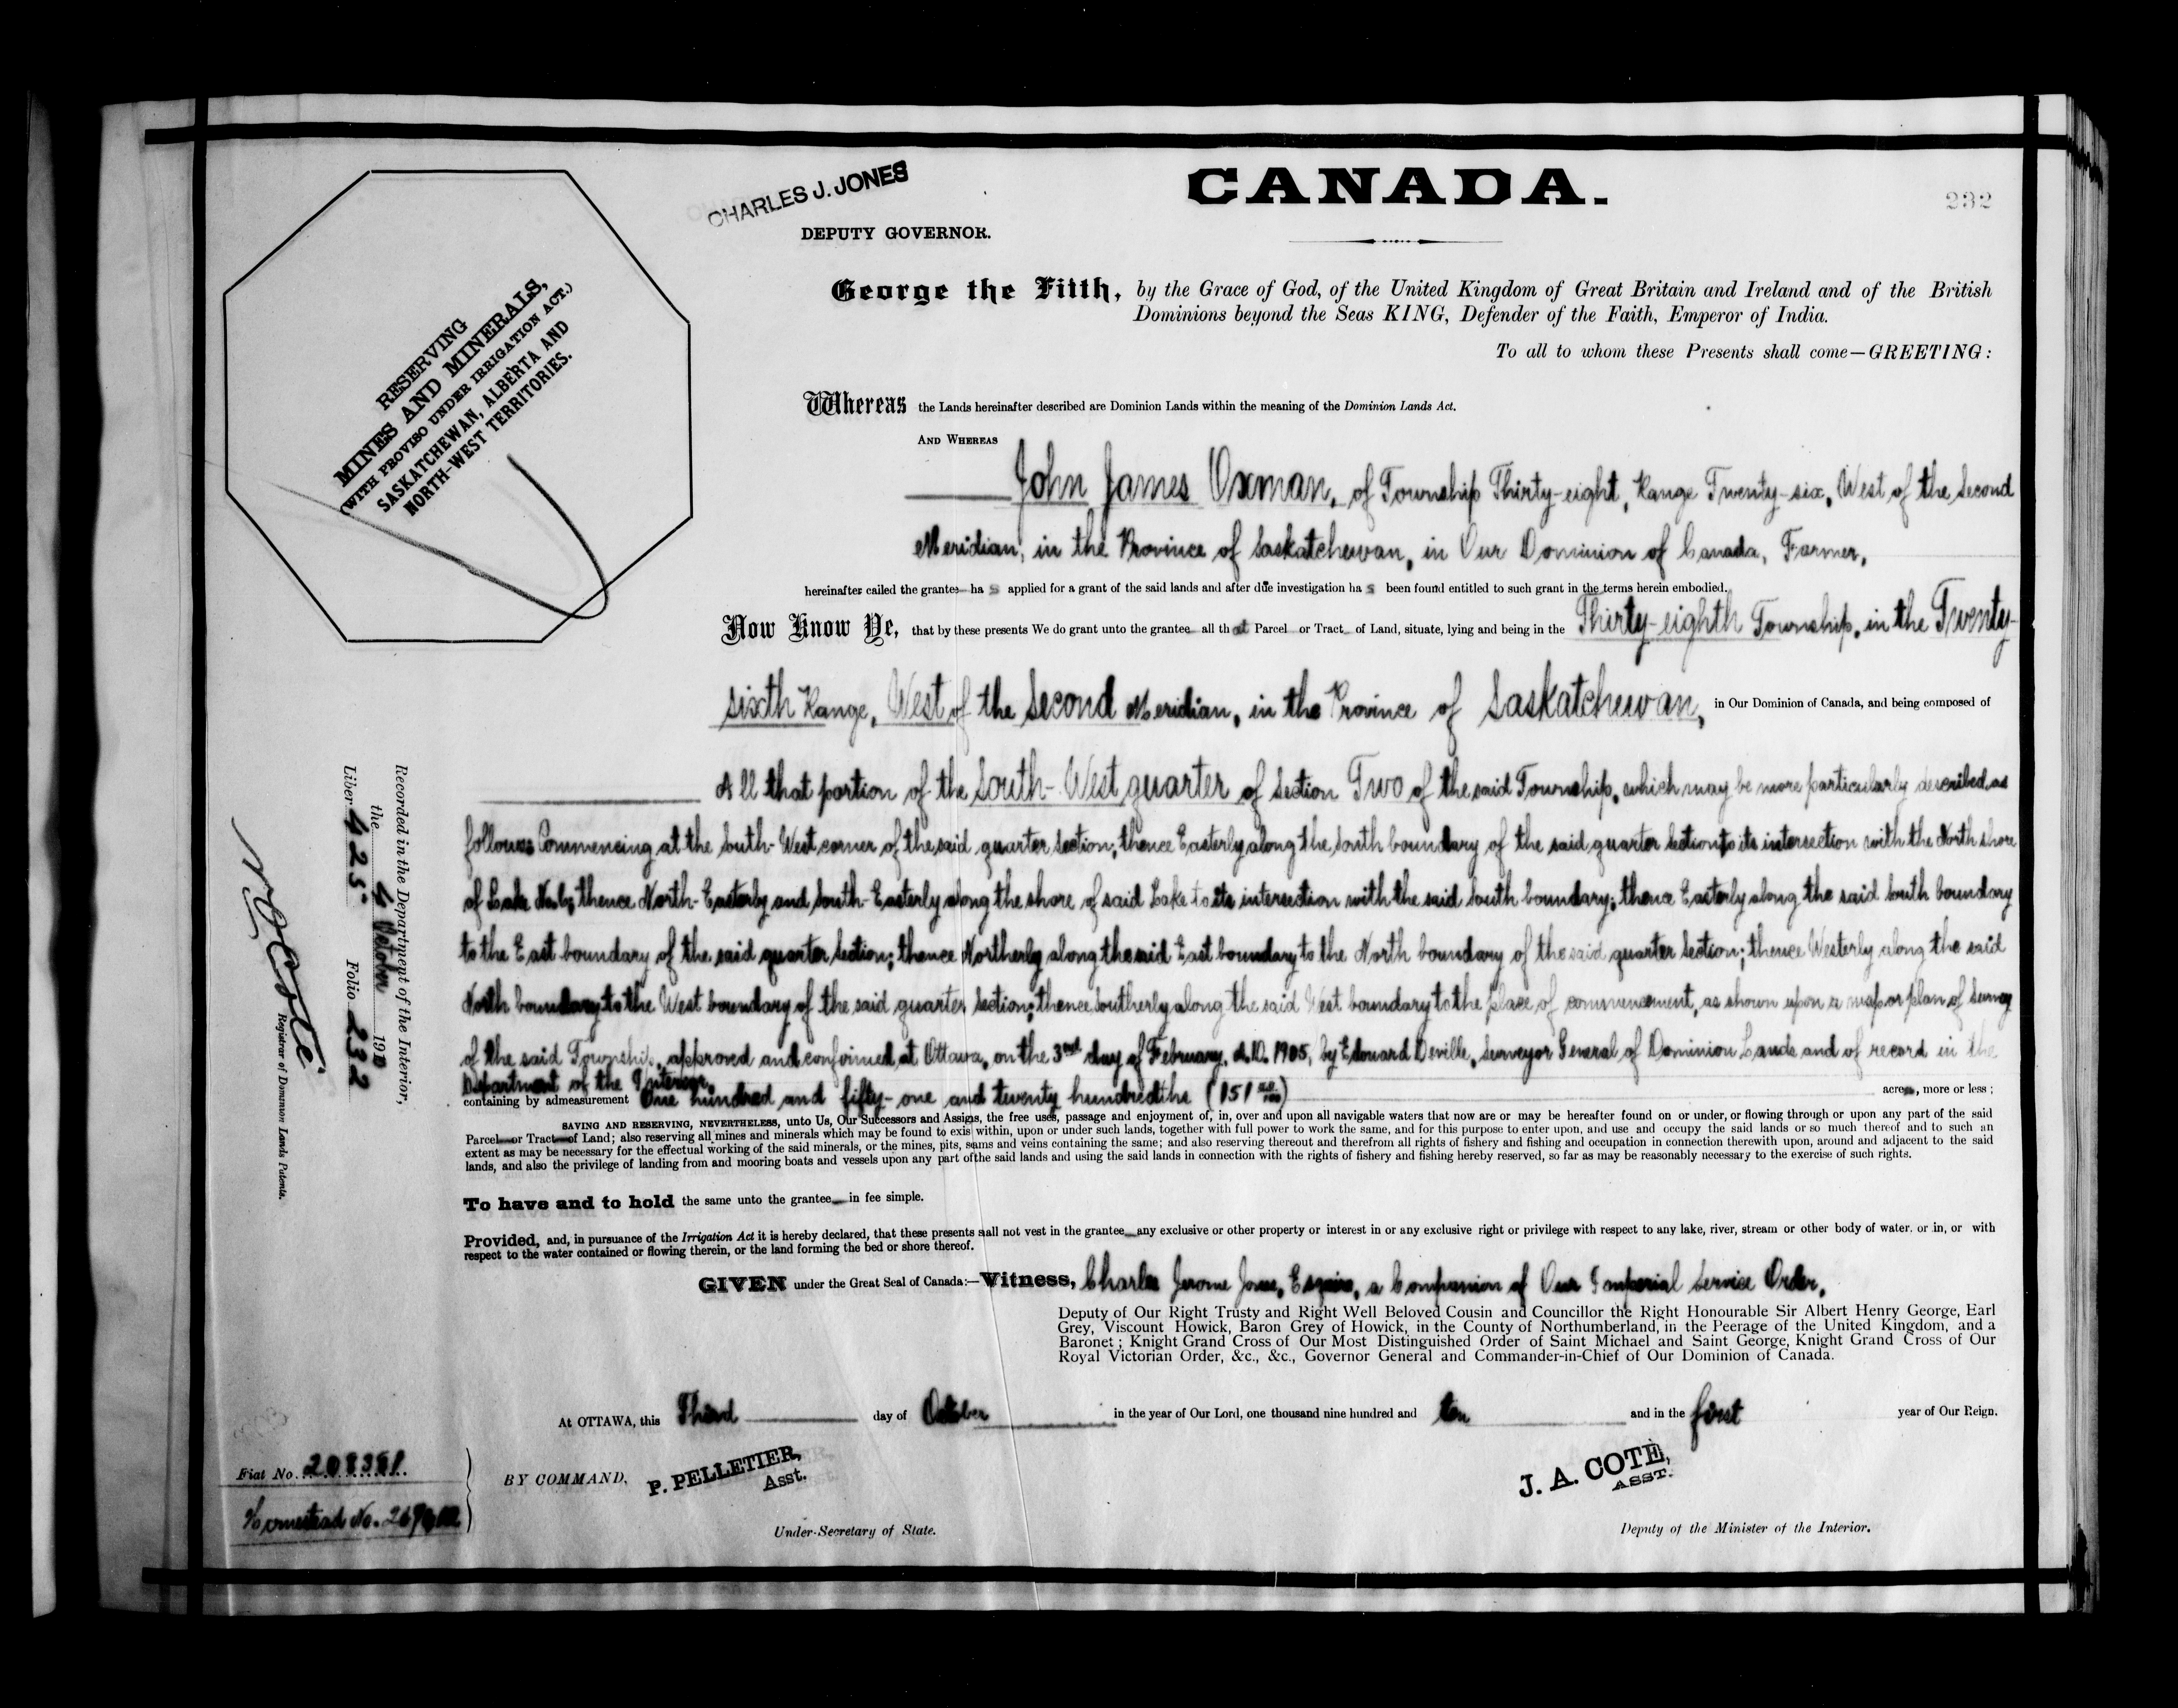 CHARLES J. JONES
DEPUTY GOVERNOR.
CANADA.
232
RESERVING
MINES AND MINERALS,
(WITH PROVISO UNDER IRRIGATION ACT.)
SASKATCHEWAN, ALBERTA AND
NORTH-WEST TERRITORIES.
George the Fifth, by the Grace of God, of the United Kingdom of Great Britain and Ireland and of the British
Dominions beyond the Seas KING, Defender of the Faith, Emperor of India.
To all to whom these Presents shall come—GREETING:
Whereas the Lands hereinafter described are Dominion Lands within the meaning of the Dominion Lands Act.
AND WHEREAS
John James Oxman, of Township Thirty-eight, Range Twenty-six, West of the Second
Meridian, in the Province of Saskatchewan, in Our Dominion of Canada, Farmer,
hereinafter called the grantee has applied for a grant of the said lands and after due investigation has been found entitled to such grant in the terms herein embodied.
Now Know Ye, that by these presents We do grant unto the grantee all that Parcel or Tract of Land, situate, lying and being in the Thirty-eighth Township, in the Twenty-
sixth Range, West of the Second Meridian, in the Province of Saskatchewan, in Our Dominion of Canada, and being composed of
All that portion of the South-West quarter of Section Two of the said Township, which may be more particularly described as
follows: Commencing at the South-West corner of the said quarter section; thence Easterly along the South boundary of the said quarter section to its intersection with the North shore
of Lake thence North-Easterly and South-Easterly along the shore of said Lake to its intersection with the said South boundary; thence Easterly along the said South boundary
to the East boundary of the said quarter section; thence Northerly along the said East boundary to the North boundary of the said quarter section; thence Westerly along the said
North boundary to the West boundary of the said quarter section; thence Southerly along the said West boundary to the place of commencement, as shown upon a map or plan of survey
of the said Township, approved and confirmed at Ottawa, on the 3rd day of February, A.D. 1905, by Edouard Deville, Surveyor General of Dominion Lands and of record in the
Department of the Interior,
containing by admeasurement One hundred and fifty-one and twenty hundredths (151 20/100) acres, more or less;
SAVING AND RESERVING, NEVERTHELESS, unto Us, Our Successors and Assigns, the free uses, passage and enjoyment of, in, over and upon all navigable waters that now are or may be hereafter found on or under, or flowing through or upon any part of the said
Parcel or Tract of Land; also reserving all mines and minerals which may be found to exis within, upon or under such lands, together with full power to work the same, and for this purpose to enter upon, and use and occupy the said lands or so much thereof and to such an
extent as may be necessary for the effectual working of the said minerals, or the mines, pits, seams and veins containing the same; and also reserving thereout and therefrom all rights of fishery and fishing and occupation in connection therewith upon, around and adjacent to the said
lands, and also the privilege of landing from and mooring boats and vessels upon any part of the said lands and using the said lands in connection with the rights of fishery and fishing hereby reserved, so far as may be reasonably necessary to the exercise of such rights.
To have and to hold the same unto the grantee in fee simple.
Provided, and, in pursuance of the Irrigation Act it is hereby declared, that these presents shall not vest in the grantee any exclusive or other property or interest in or any exclusive right or privilege with respect to any lake, river, stream or other body of water, or in, or with
respect to the water contained or flowing therein, or the land forming the bed or shore thereof.
GIVEN under the Great Seal of Canada:—Witness, Charles Jerome Jones, Esquire, a Companion of Our Imperial Service Order,
Deputy of Our Right Trusty and Right Well Beloved Cousin and Councillor the Right Honourable Sir Albert Henry George, Earl
Grey, Viscount Howick, Baron Grey of Howick, in the County of Northumberland, in the Peerage of the United Kingdom, and a
Baronet; Knight Grand Cross of Our Most Distinguished Order of Saint Michael and Saint George, Knight Grand Cross of Our
Royal Victorian Order, &c., &c., Governor General and Commander-in-Chief of Our Dominion of Canada.
At OTTAWA, this Third day of October in the year of Our Lord, one thousand nine hundred and ten and in the first year of Our Reign.
BY COMMAND,
P. PELLETIER,
Asst.
Under-Secretary of State.
J. A. COTE,
ASST.
Deputy of the Minister of the Interior.
Recorded in the Department of the Interior,
the 4 October 1910
Liber 425 Folio 232
N. O. Coté
Registrar of Dominion Lands Patents.
Fiat No. 208381
Homestead No.